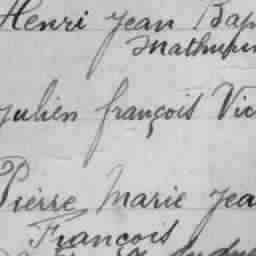 Henri Jean Bap
Mathurin
Julien François Vic
Pierre Marie Jea
François